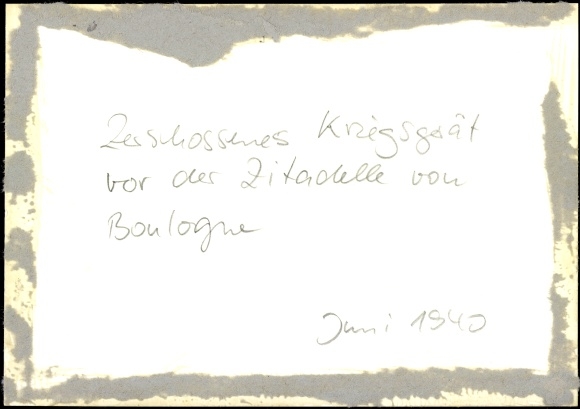 Zerschossenes Kriegsgerät
vor der Zitadelle von
Boulogne
Juni 1940